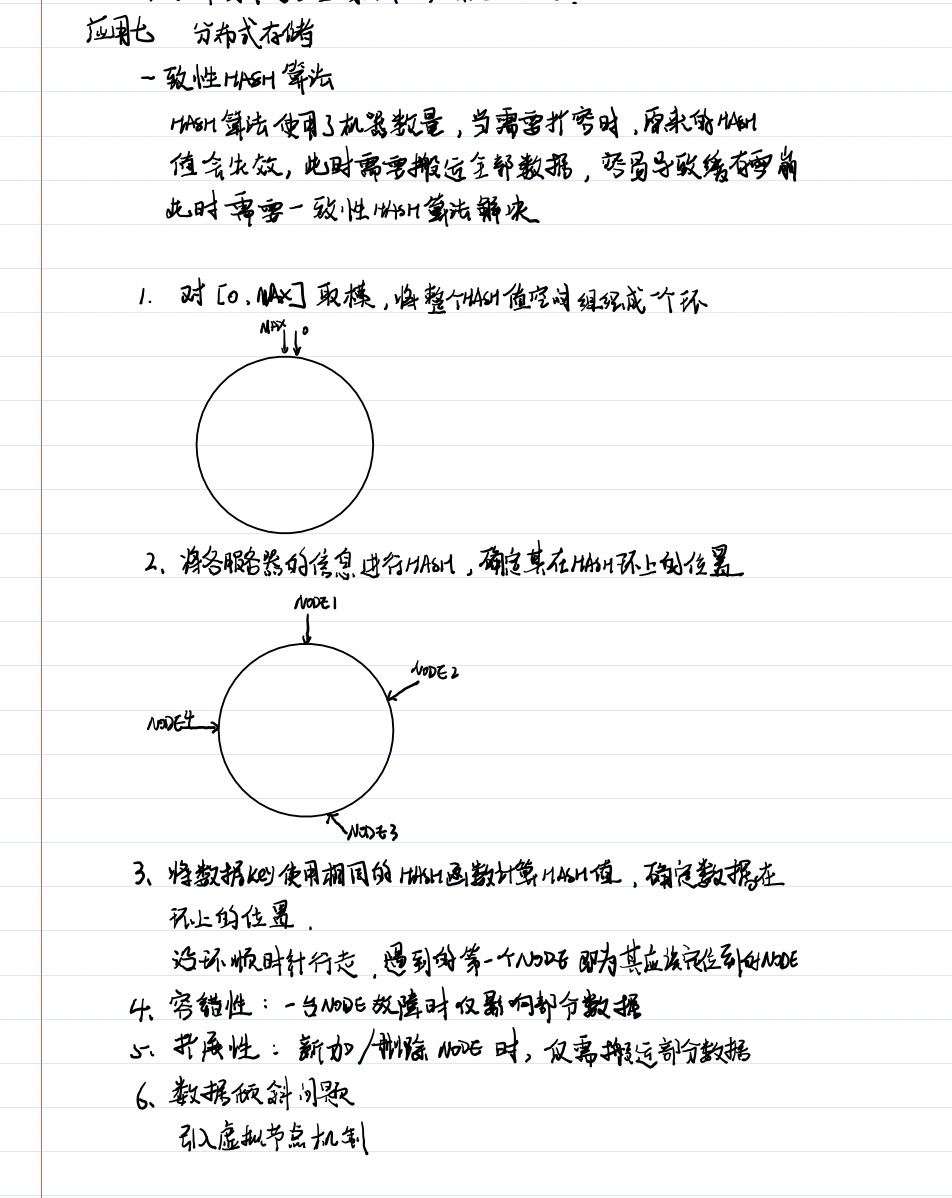 应用七 分布式存储
一致性HASH算法
HASH算法使用了机器数量，当需要扩容时，原来的HASH
值会失效，此时需要搬运全部数据，容易导致缓存雪崩
此时需要一致性HASH算法解决
1. 对[0、MAX]取模，将整个HASH值空间组织成一个环
MAX 0
2、将各服务器的信息进行HASH，确定其在HASH环上的位置
NODE1
NODE2
NODE4
NODE3
3、将数据key使用相同的HASH函数计算HASH值，确定数据在
环上的位置.
沿环顺时针行走，遇到的第一个NODE即为其应该定位到的NODE
4、容错性：一台NODE故障时仅影响部分数据
5、扩展性：新加/删除NODE时，仅需搬运部分数据
6、数据倾斜问题
引入虚拟节点机制